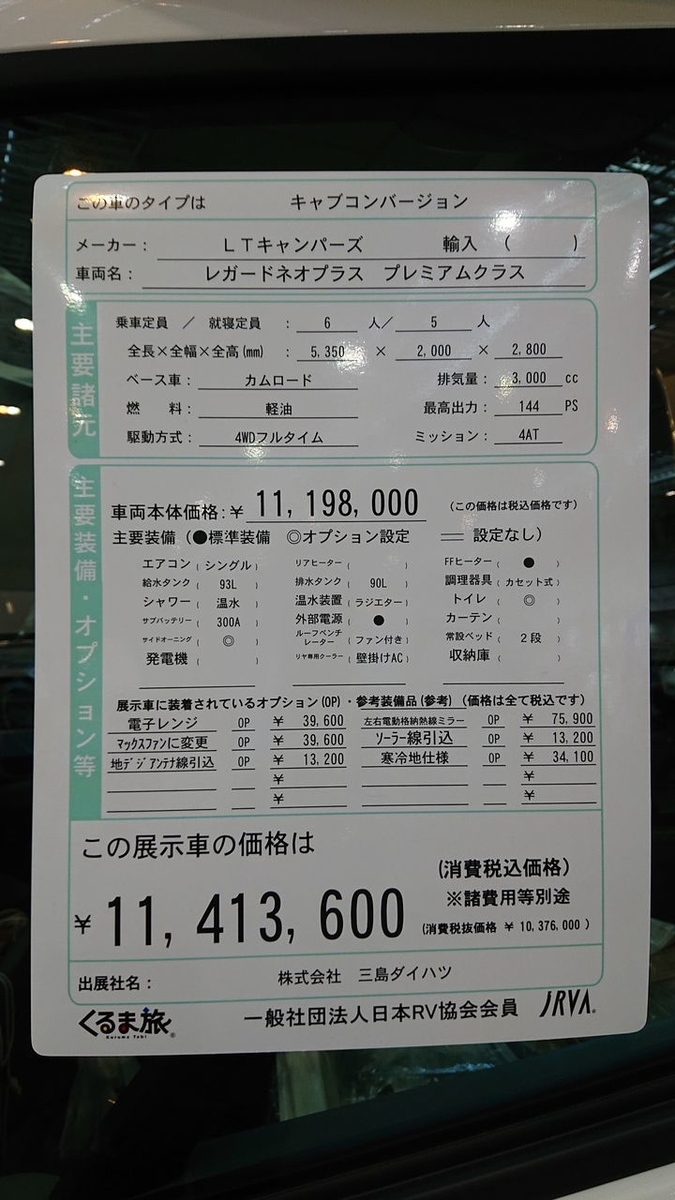 この車のタイプは キャブコンバージョン
メーカー： LTキャンパーズ 輸入 （ ）
車両名： レガードネオプラス プレミアムクラス
主要諸元
乗車定員 ／ 就寝定員 ： 6 人／ 5 人
全長×全幅×全高(mm) ： 5,350 × 2,000 × 2,800
ベース車： カムロード 排気量： 3,000 cc
燃 料： 軽油 最高出力： 144 PS
駆動方式： 4WDフルタイム ミッション： 4AT
主要装備・オプション等
車両本体価格：¥ 11,198,000 (この価格は税込価格です)
主要装備（●標準装備 ◎オプション設定 ＝ 設定なし）
エアコン（ シングル ） リアヒーター（ ） FFヒーター（ ● ）
給水タンク（ 93L ） 排水タンク（ 90L ） 調理器具（ カセット式 ）
シャワー（ 温水 ） 温水装置（ ラジエター ） トイレ（ ◎ ）
サブバッテリー（ 300A ） 外部電源（ ● ） カーテン（ ）
サイドオーニング（ ◎ ） ルーフベンチレーター（ ファン付き ） 常設ベッド（ 2段 ）
発電機（ ） リヤ専用クーラー（ 壁掛けAC ） 収納庫（ ）
展示車に装着されているオプション(OP)・参考装備品(参考) (価格は全て税込です)
電子レンジ OP ¥ 39,600 左右電動格納熱線ミラー OP ¥ 75,900
マックスファンに変更 OP ¥ 39,600 ソーラー線引込 OP ¥ 13,200
地デジアンテナ線引込 OP ¥ 13,200 寒冷地仕様 OP ¥ 34,100
¥ ¥
¥ ¥
この展示車の価格は
(消費税込価格)
¥ 11,413,600 ※諸費用等別途
(消費税抜価格 ¥ 10,376,000 )
出展社名： 株式会社 三島ダイハツ
くるま旅® Kuruma Tabi 一般社団法人日本RV協会会員 JRVA®